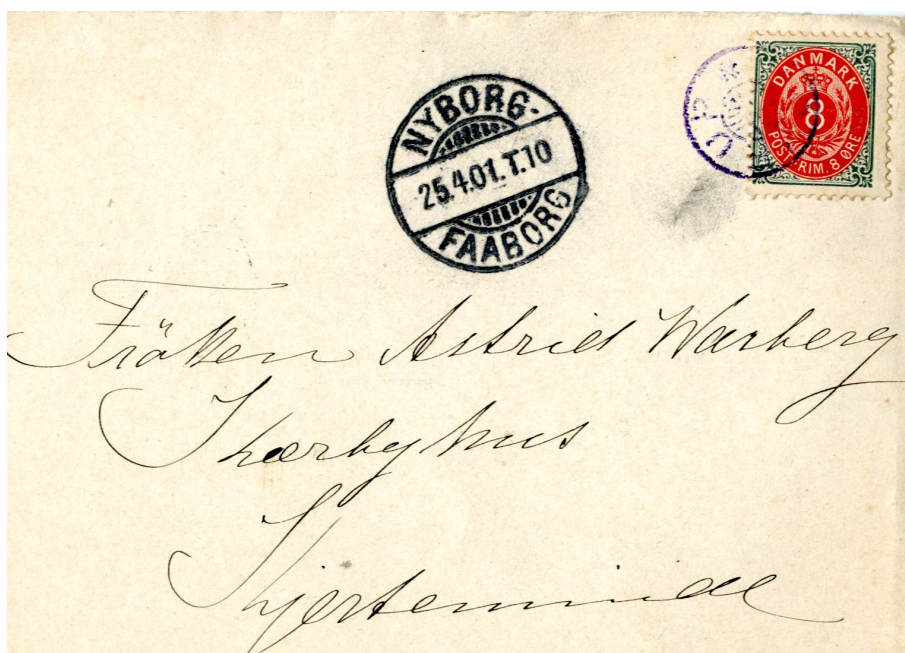 NYBORG-
25.4.01. T.10
FAABORG
DANMARK
8
POSTFRIM. 8 ØRE
Fröken Astrid Warberg
Kjerteminde